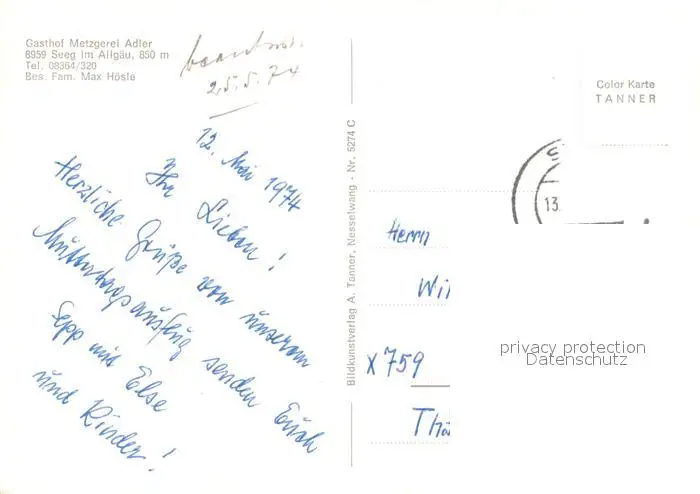 Gasthof Metzgerei Adler
8959 Seeg im Allgäu, 850 m
Tel. 08364/320
Bes. Fam. Max Hösle
beantw.
25.5.74
12. Mai 1974
Ihr Lieben!
Herzliche Grüße von unserem
Muttertagsausflug senden Euch
Sepp und Else
und Kinder!
Bildkunstverlag A. Tanner, Nesselwang - Nr. 5274 C
Color Karte
TANNER
13.
Herrn
Wil
X 759
Th
privacy protection
Datenschutz